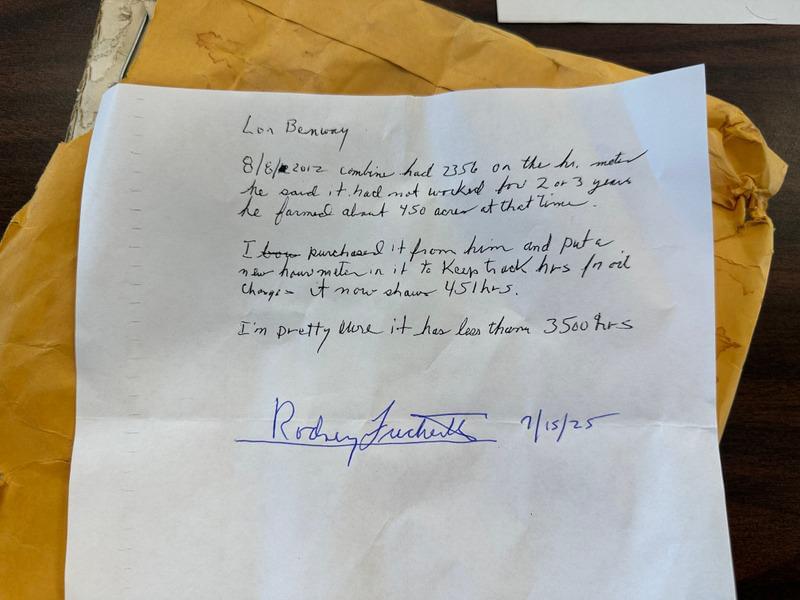 Lon Benway
8/8/2012 combine had 2356 on the hr. meter
he said it had not worked for 2 or 3 years
he farmed about 450 acres at that time.
I purchased it from him and put a
new hourmeter in it to keep track hrs for oil
change it now shows 451 hrs.
I'm pretty sure it has less than 3500 hrs
Rodney 7/15/25